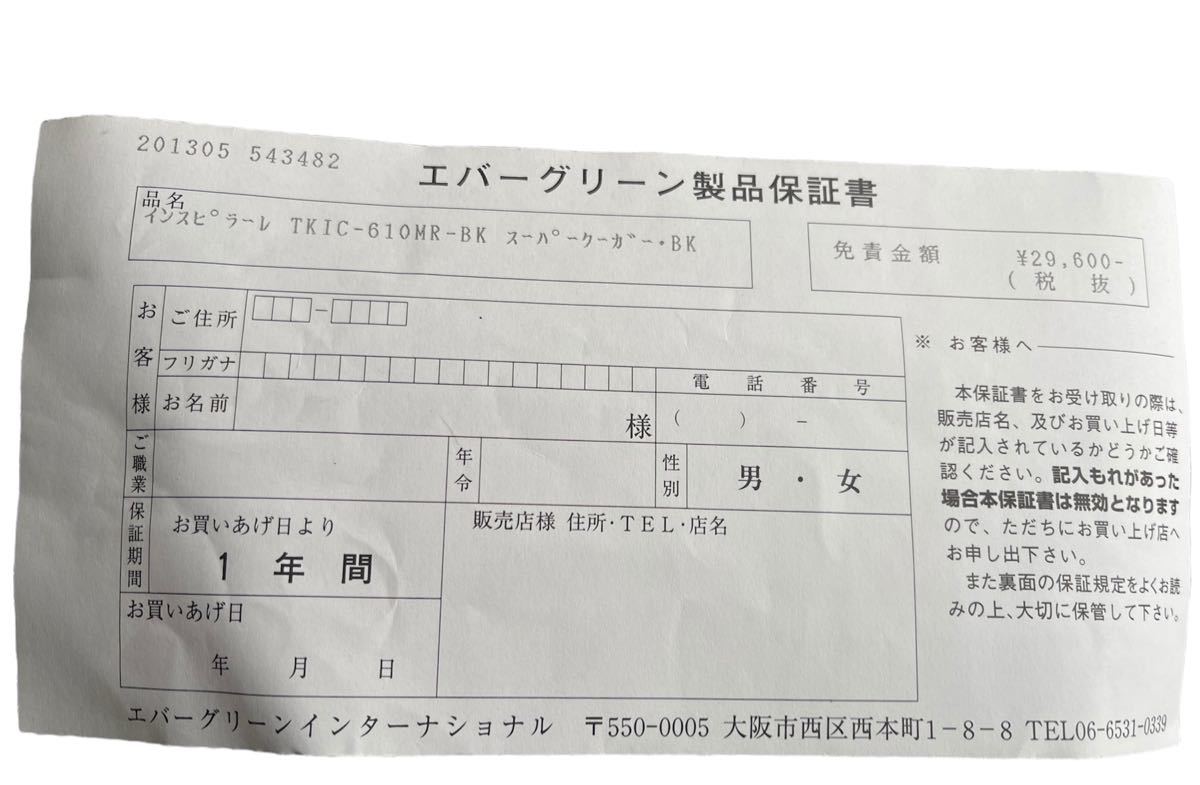 201305 543482
エバーグリーン製品保証書
品名
インスピラーレ TKIC-610MR-BK スーパークーガー・BK
免責金額 ¥29,600-
(税 抜)
お客様
ご住所
フリガナ
お名前
様
電 話 番 号
( ) −
ご職業
年令
性別
男 ・ 女
保証期間
お買いあげ日より
1 年 間
お買いあげ日
年 月 日
販売店様 住所・TEL・店名
※ お客様へ
本保証書をお受け取りの際は、
販売店名、及びお買い上げ日等
が記入されているかどうかご確
認ください。記入もれがあった
場合本保証書は無効となります
ので、ただちにお買い上げ店へ
お申し出下さい。
また裏面の保証規定をよくお読
みの上、大切に保管して下さい。
エバーグリーンインターナショナル 〒550-0005 大阪市西区西本町1−8−8 TEL06-6531-0339